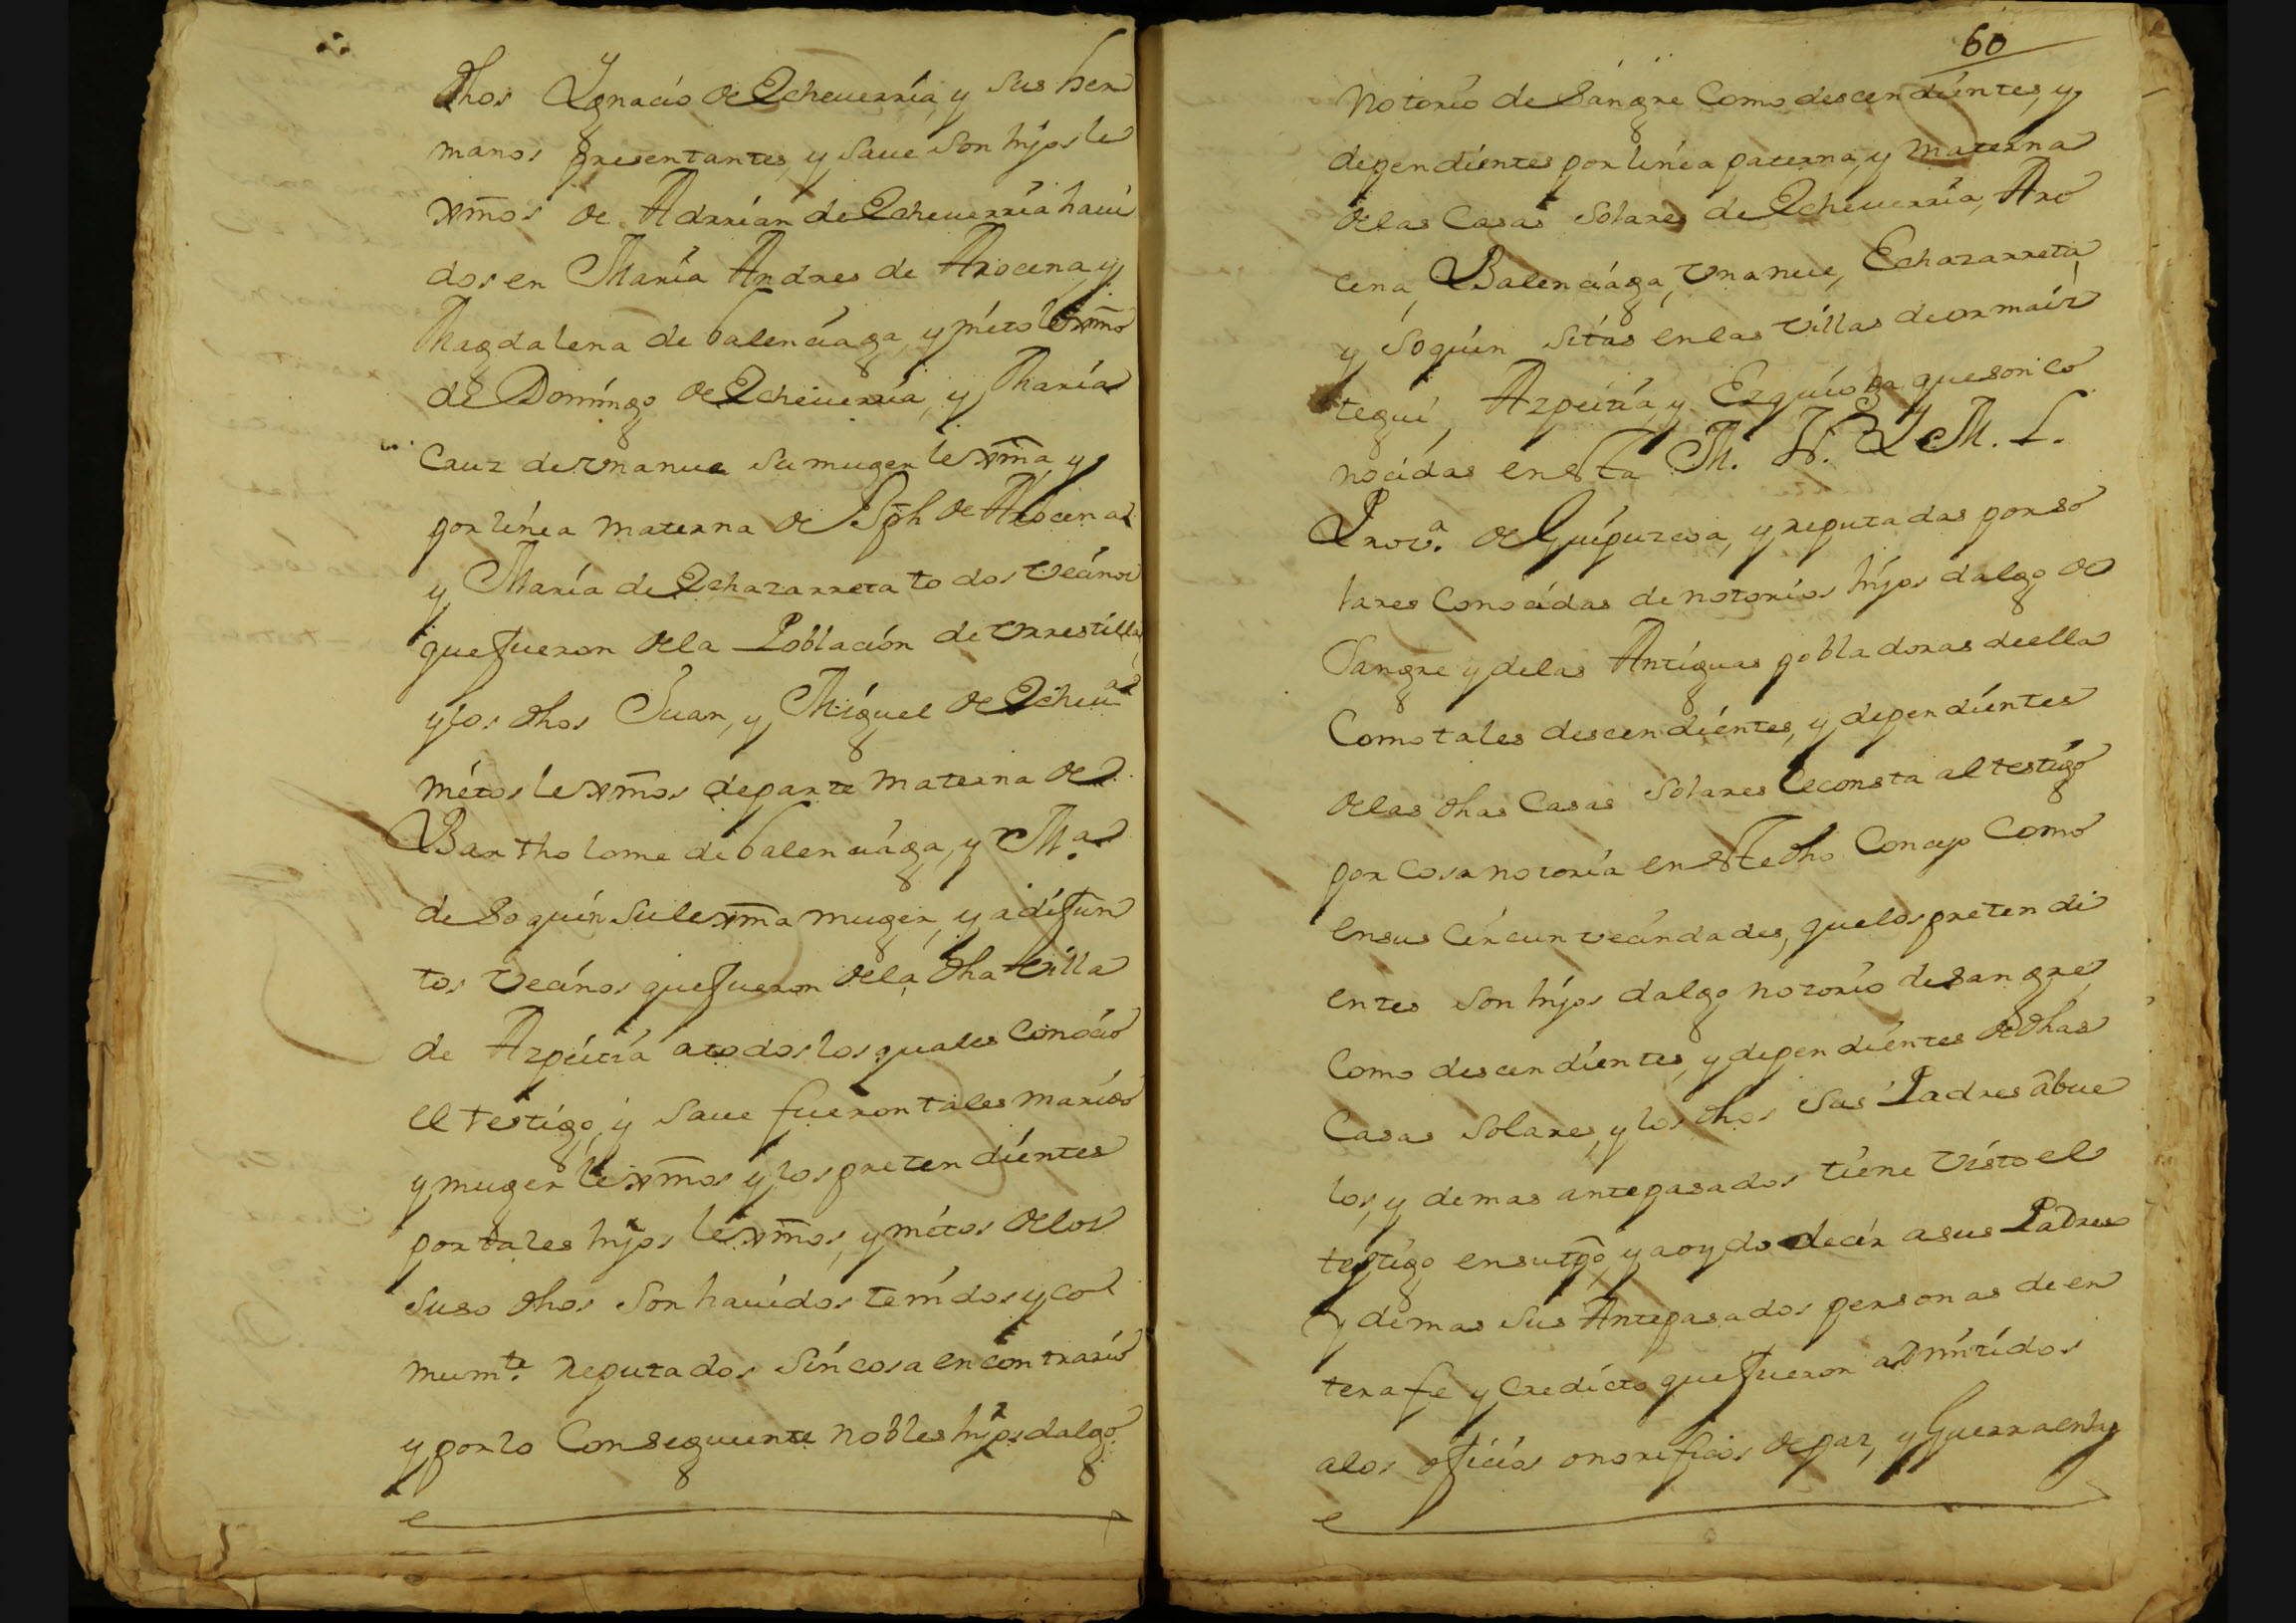 dhos Ygnacio de Echeuerria, y sus her
manos presentantes, y saue son hijos le
xmos de Adrian de Echeuerria haui
dos en Maria Andres de Arocena, y
Magdalena de balenciaga, y nieto lexmo
de Domingo de Echeuerria, y Maria
Cruz de Vnanue su muger lexma, y
por linea materna de Jph de Arocena
y Maria de Echazarreta todos vecinos
que fueron de la Poblacion de Vrrestilla,
y los dhos Juan, y Miguel de Echeua
nietos lexmos de parte materna de
Bartholome de balenciaga, y Ma
de Soquin su lexma muger, ya difun
tos vecinos que fueron de la dha villa
de Azpeitia atodos los quales conocio
el testigo, y saue fueron tales marido
y muger lexmos y los pretendientes
por tales hijos lexmos, y nietos de los
suso dhos son hauidos tenidos y co
mumte reputados sin cosa en contrario
y por lo Conseguiente nobles hijos dalgo
60
Notorio de Sangre Como descendientes, y
dependientes por linea paterna, y materna
de las Casas Solares de Echeuerria, Aro
cena, Balenciaga, Vnanue, Echazarreta,
y Soquin sitas en las villas de ormaiz
tegui, Azpeitia, y Ezquioga que son co
nocidas en esta M. N. Y M. L.
Prova. de Guipuzcoa, y reputadas por so
lares Conocidas de notorios hijos dalgo de
Sangre y de las Antiguas pobladoras de ella
Como tales descendientes, y dependientes
de las dhas Casas Solares le consta al testigo
por cosa notoria en este dho Concejo Como
en sus circunvecindades, que los pretendi
entes son hijos dalgo notorio de sangre,
Como descendientes, y dependientes de dhas
Casas Solares, y los dhos sus Padres abue
los, y demas antepasados tiene visto el
testigo en su tpo, y a oydo decir a sus Padres
y demas sus Antepasados personas de en
tera fe y credicto que fueron admitidos
alos oficios onorificos de paz, y Guerra entre